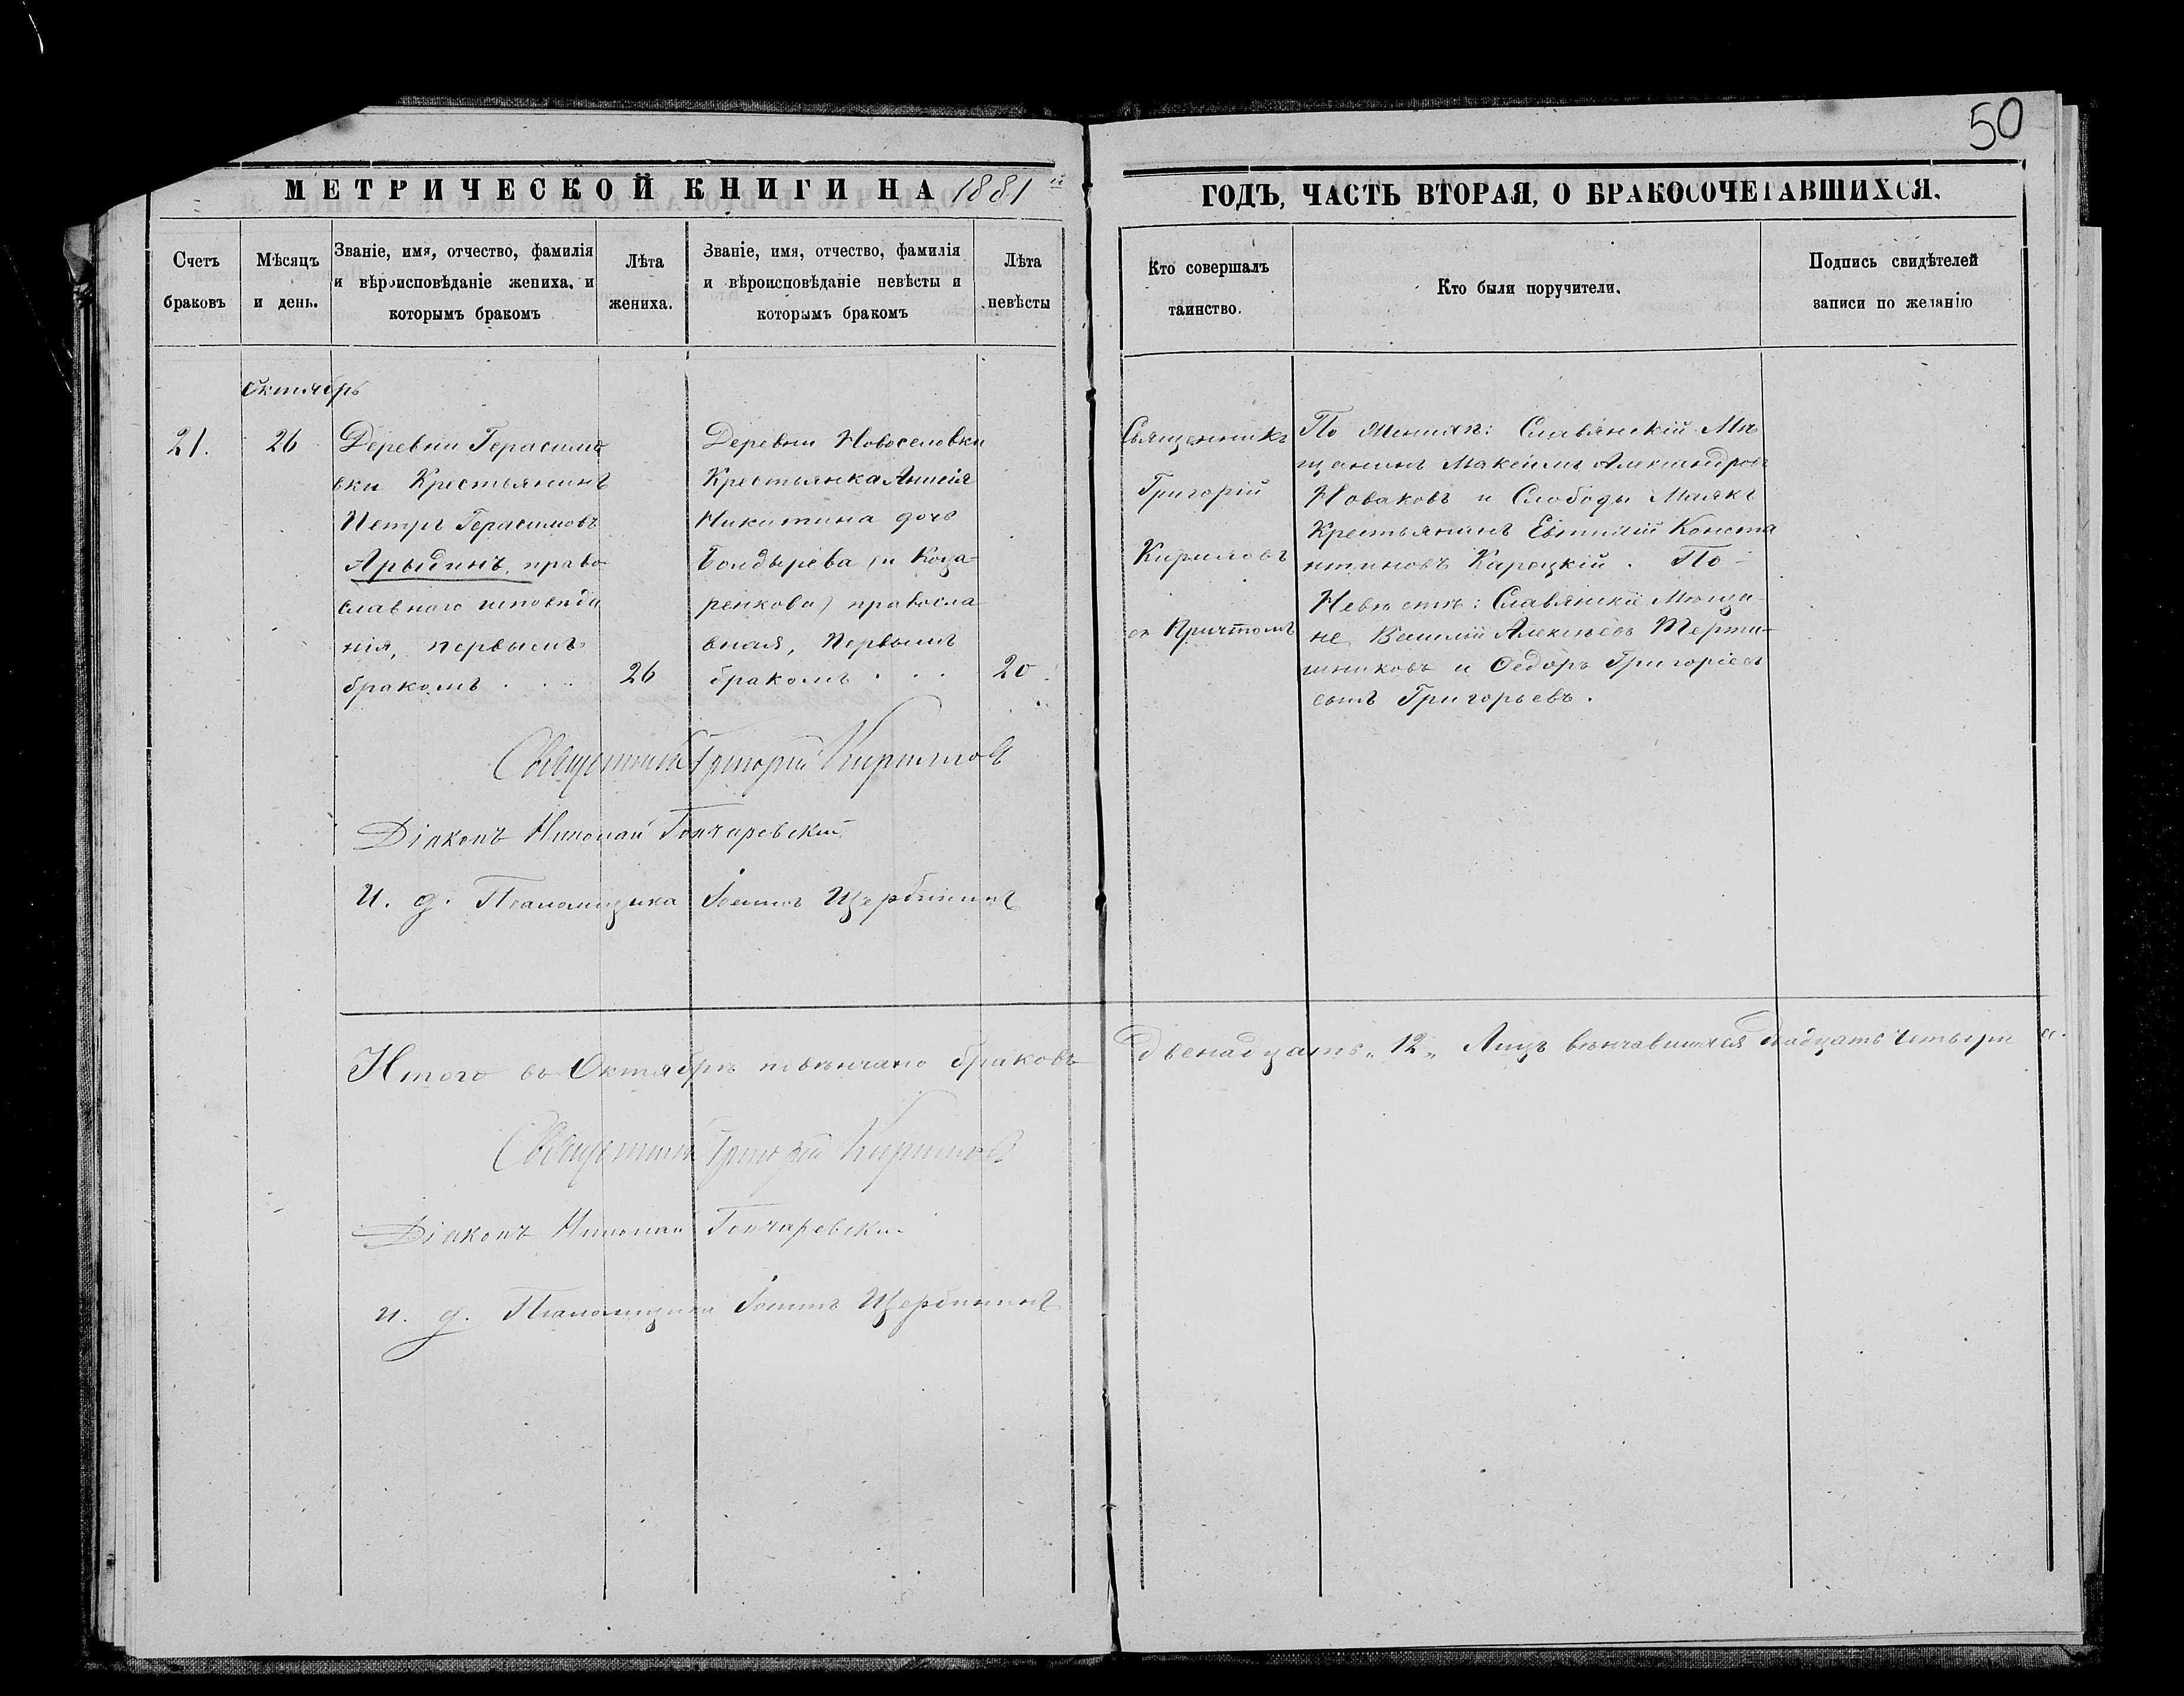 50
МЕТРИЧЕСКОЙ КНИГИ НА 1881 й
ГОДЪ, ЧАСТЬ ВТОРАЯ, О БРАКОСОЧЕТАВШИХСЯ.
Счетъ
браковъ
Мѣсяцъ
и день.
Званіе, имя, отчество, фамилія
и вѣроисповѣданіе жениха, и
которымъ бракомъ
Лѣта
жениха.
Званіе, имя, отчество, фамилія
и вѣроисповѣданіе невѣсты и
которымъ бракомъ
Лѣта
невѣсты
Кто совершалъ
таинство.
Кто были поручители.
Подпись свидѣтелей
записи по желанію
Октябрь
21.
26
Деревни Герасимо
вки Крестьянинъ
Петръ Герасимовъ
Арыдинъ, право
славнаго исповѣда
нія, первымъ
бракомъ . . .
26
Деревни Новоселовки
Крестьянка
Никитина дочь
Бондырева (и Коза-
ренкова) правосла
вная, Первымъ
бракомъ . . .
20.
Священникъ
Григорій
Кириловъ
съ Причтомъ
По Женихѣ: Славянскій Мѣ
щанинъ Максимъ Александровъ
Новаковъ и Слободы Маякъ
Крестьянинъ Евтимій Конста
нтиновъ Карецкій . По-
Невѣстѣ: Славянскіе Мѣща-
не, Василій Алексѣевъ
и Ѳедоръ Григоріевъ
сынъ Григорьевъ.
Священникъ Григорій Кириловъ
Діаконъ Николай Гончаревскій
И. д. Псаломщика Іоаннъ Щербининъ
Итого въ Октябрѣ повѣнчано браковъ двенадцать „12„ Лицъ вѣнчавшихся двадцать четыре
Священникъ Григорій Кириловъ
Діаконъ Николай Гончаревскій
и. д. Псаломщика Іоаннъ Щербининъ